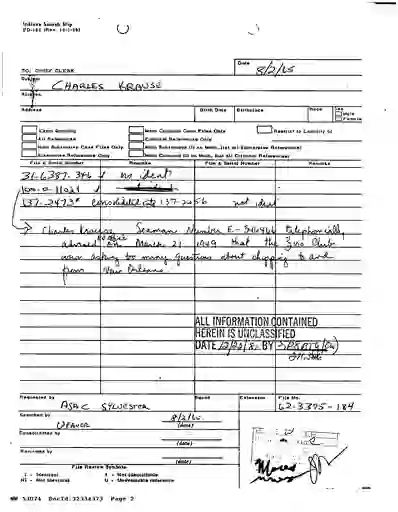 Indices Search Slip
FD-160 (Rev. 10-1-59)
TO: CHIEF CLERK
Date
8/2/65
Subject
CHARLES KRAUSE
Aliases
Address
Birth Date
Birthplace
Race
Sex
Male
Female
Exact Spelling
Main Criminal Case Files Only
Restrict to Locality of
All References
Criminal References Only
Main Subversive Case Files Only
Main Subversive (If no Main, list all Subversive References)
Subversive References Only
Main Criminal (If no Main, list all Criminal References)
File & Serial Number
Remarks
File & Serial Number
Remarks
no ident
100-0-11021
137-2473* consolidated into 137-2656
not ident
Charles Seaman Number telephonically
advised on March 21 1949 that the Club
was asking too many questions about shipping to and
from New Orleans.
ALL INFORMATION CONTAINED
HEREIN IS UNCLASSIFIED
DATE BY
Requested by
ASAC SYLVESTER
Squad
Extension
File No.
62-3395-184
Searched by
WEAVER
8/2/65
(date)
Consolidated by
(date)
Reviewed by
(date)
File Review Symbols
I - Identical
? - Not identifiable
NI - Not identical
U - Unavailable reference
DocId:32334373 Page 2